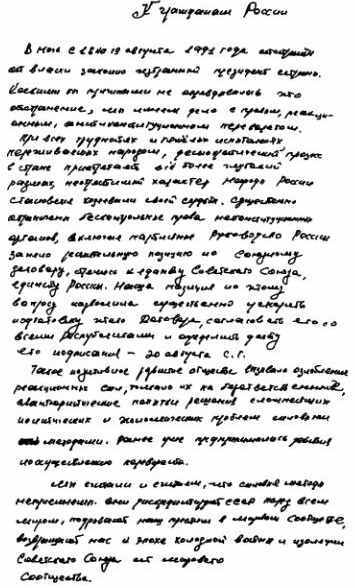 К гражданам России
В ночь с 18 на 19 августа 1991 года отстранён
от власти законно избранный президент страны.
Какими бы причинами не оправдывалось это
отстранение, мы имеем дело с правым, реакци-
онным, антиконституционным переворотом.
При всех трудностях и тяжёлых испытаниях
переживаемых народом, демократический процесс
в стране приобретает всё более глубокий
размах, необратимый характер народы России
становятся хозяевами своей судьбы. Существенно
ограничены бесконтрольные права неконституционных
органов, включая партийные Руководство России
заняло решительную позицию по Союзному
договору, стремясь к единству Советского Союза,
единству России. Наша позиция по этому
вопросу позволила существенно ускорить
подготовку этого Договора, согласовать его со
всеми Республиками и определить дату
его подписания – 20 августа с.г.
Такое развитие вызвало озлобление
реакционных сил, толкало их на безответственные,
авантюристические попытки решения сложнейших
политических и экономических проблем силовыми
методами. Ранее уже предпринимались попытки
по осуществлению переворота.
Мы считали и считаем, что силовые методы
неприемлемы. Они дискредитируют СССР перед всем
миром, подрывают наш престиж в мировом сообществе,
возвращают нас к эпохе холодной войны и изоляции
Советского Союза от мирового
Сообщества.